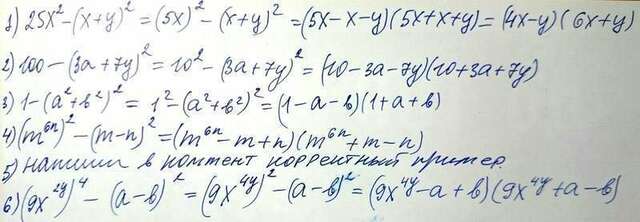 1) 25x² - (x+y)² = (5x)² - (x+y)² = (5x-x-y)(5x+x+y) = (4x-y)(6x+y)
2) 100 - (3a+7y)² = 10² - (3a+7y)² = (10-3a-7y)(10+3a+7y)
3) 1-(a²+b²)² = 1² - (a²+b²)² = (1-a-b)(1+a+b)
4) (m⁶ⁿ)² - (m-n)² = (m⁶ⁿ-m+n)(m⁶ⁿ+m-n)
5) напиши в комент корректный пример.
6) (9x²ʸ)⁴ - (a-b)² = (9x⁴ʸ)² - (a-b)² = (9x⁴ʸ-a+b)(9x⁴ʸ+a-b)